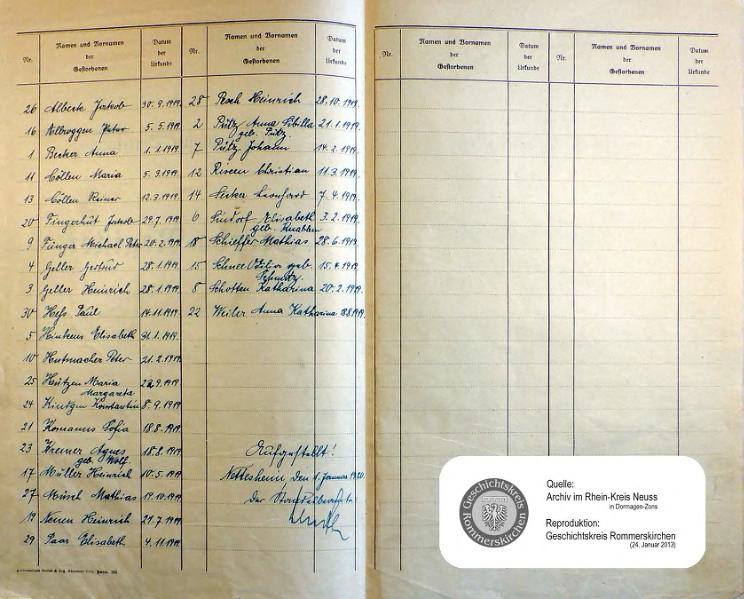 Nr. Namen und Vornamen der Gestorbenen Datum der Urkunde
26 Alberts Jakob 30.9.1919
16 Elbroggen Peter 5.5.1919.
1 Becker Anna 1.1.1919.
11 Cöllen Maria 5.3.1919
13 Cöllen Reiner 12.3.1919
20 Fingerhut Jakob 29.7.1919
9 Fünger Michael Peter 20.2.1919
4 Geller Gertrud 28.1.1919.
3 Geller Heinrich 28.1.1919
30 Heß Paul 14.11.1919
5 Elisabeth 31.1.1919.
10 Hutmacher Peter 21.2.1919
25 Hützen Maria 22.9.1919.
Margareta
24 Kindgen Konstantin 8.9.1919
21 Komanns Sofia 18.8.1919
23 Kremer Agnes 18.8.1919
geb. Wolf
17 Müller Heinrich 10.5.1919
27 Mathias 19.10.1919
19 Nenen Heinrich 29.7.1919
29 Paar Elisabeth 4.11.1919
Nr. Namen und Vornamen der Gestorbenen Datum der Urkunde
28 Heinrich 28.10.1919.
2 Pütz Anna Sibilla 21.1.1919.
geb. Pütz
7 Pütz Johann 14.2.1919
12 Christian 11.3.1919.
14 Leonhard 7.4.1919.
6 Sindorf Elisabeth 3.2.1919.
geb.
18 Schieffer Mathias 28.6.1919.
15 Schnee Odilia geb. 15.4.1919.
Schmitz
8 Schotten Katharina 20.2.1919.
22 Weiler Anna Katharina 18.8.1919.
Aufgestellt!
Nettesheim den 1. Januar 1920.
Der Standesbeamte
Nr. Namen und Vornamen der Gestorbenen Datum der Urkunde
Nr. Namen und Vornamen der Gestorbenen Datum der Urkunde
Geschichtskreis Rommerskirchen
Quelle:
Archiv im Rhein-Kreis Neuss
in Dormagen-Zons
Reproduktion:
Geschichtskreis Rommerskirchen
(24. Januar 2013)